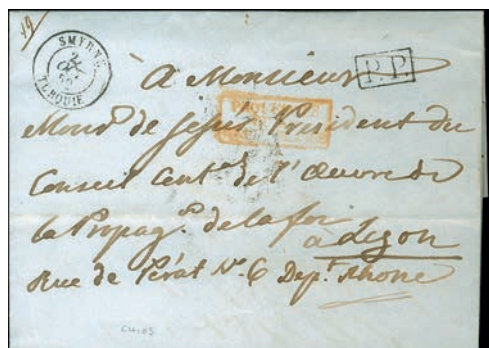 19
SMYRNE
2
OCT
52
TURQUIE
P.P.
à Monsieur
Mons.r de Jessé Président du
Conseil Cent.al de l'Œuvre de
la Propag.on de la foi
à Lyon
Rue de Pérat N.o 6 Dep.t Rhone
CHIOS